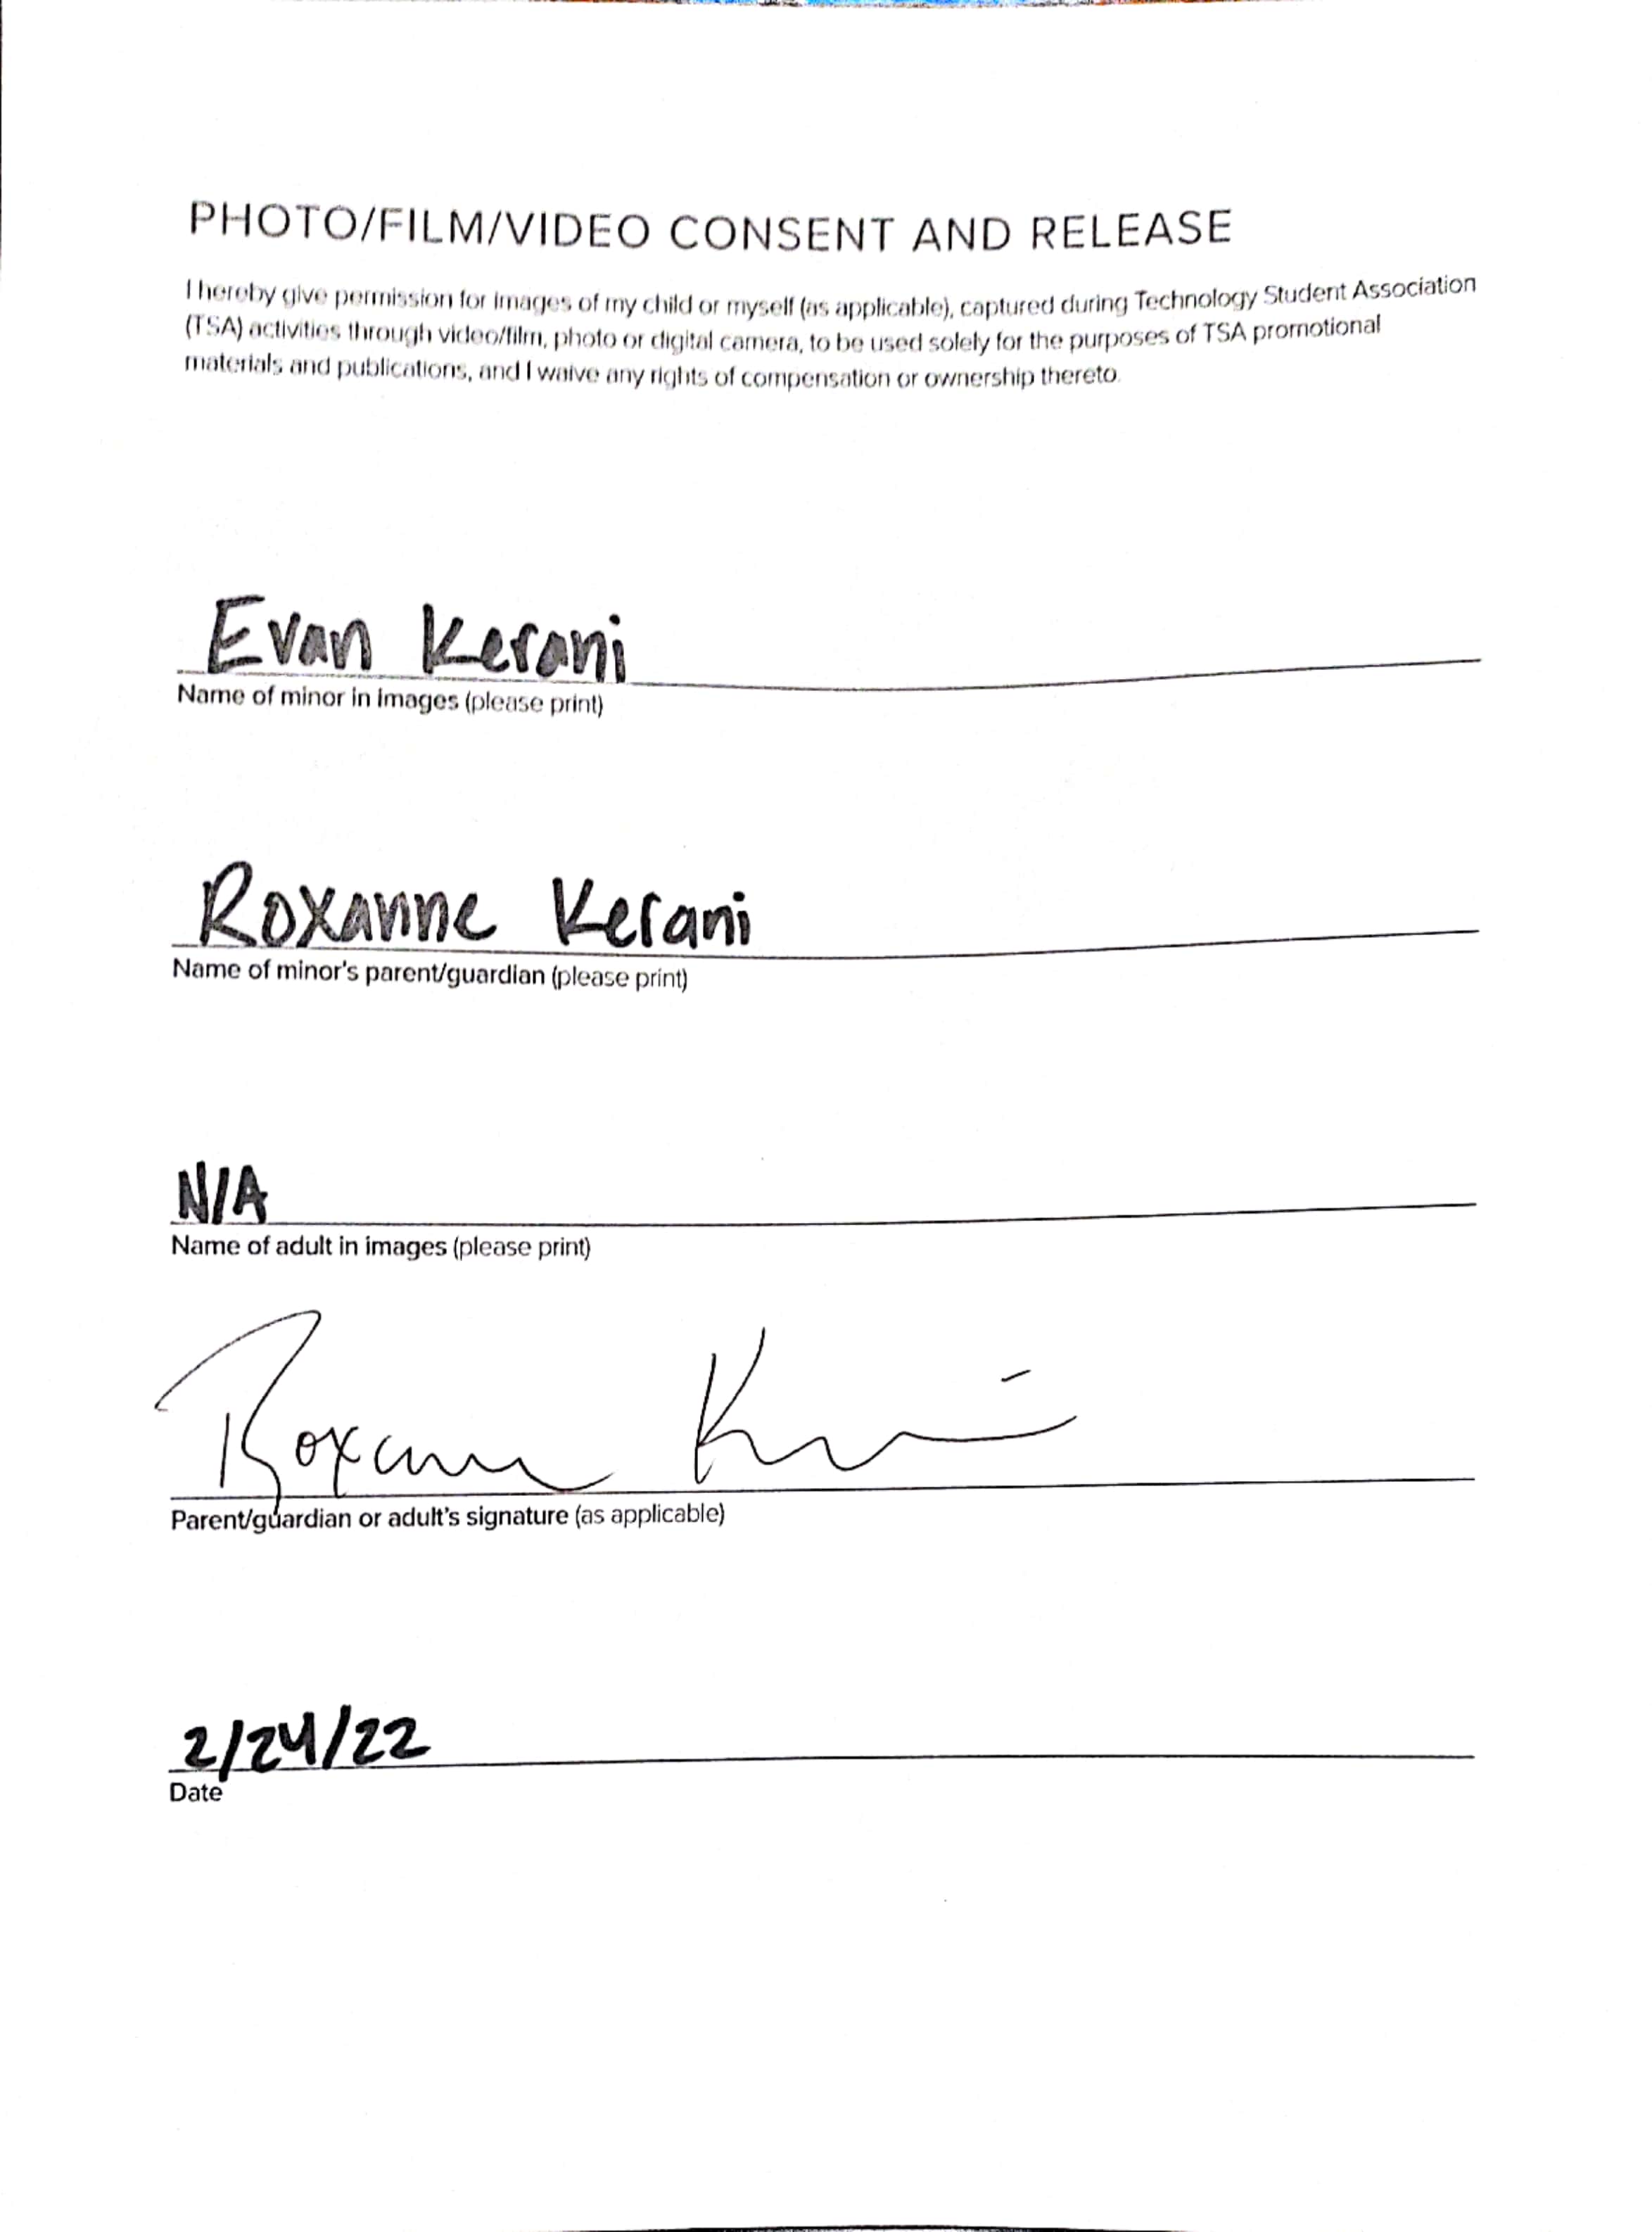 PHOTO/FILM/VIDEO CONSENT AND RELEASE
I hereby give permission for images of my child or myself (as applicable), captured during Technology Student Association
(TSA) activities through video/film, photo or digital camera, to be used solely for the purposes of TSA promotional
materials and publications, and I waive any rights of compensation or ownership thereto.
Evan Kerani
Name of minor in images (please print)
Roxanne Kerani
Name of minor's parent/guardian (please print)
N/A
Name of adult in images (please print)
Roxanne Kerani
Parent/guardian or adult's signature (as applicable)
2/24/22
Date